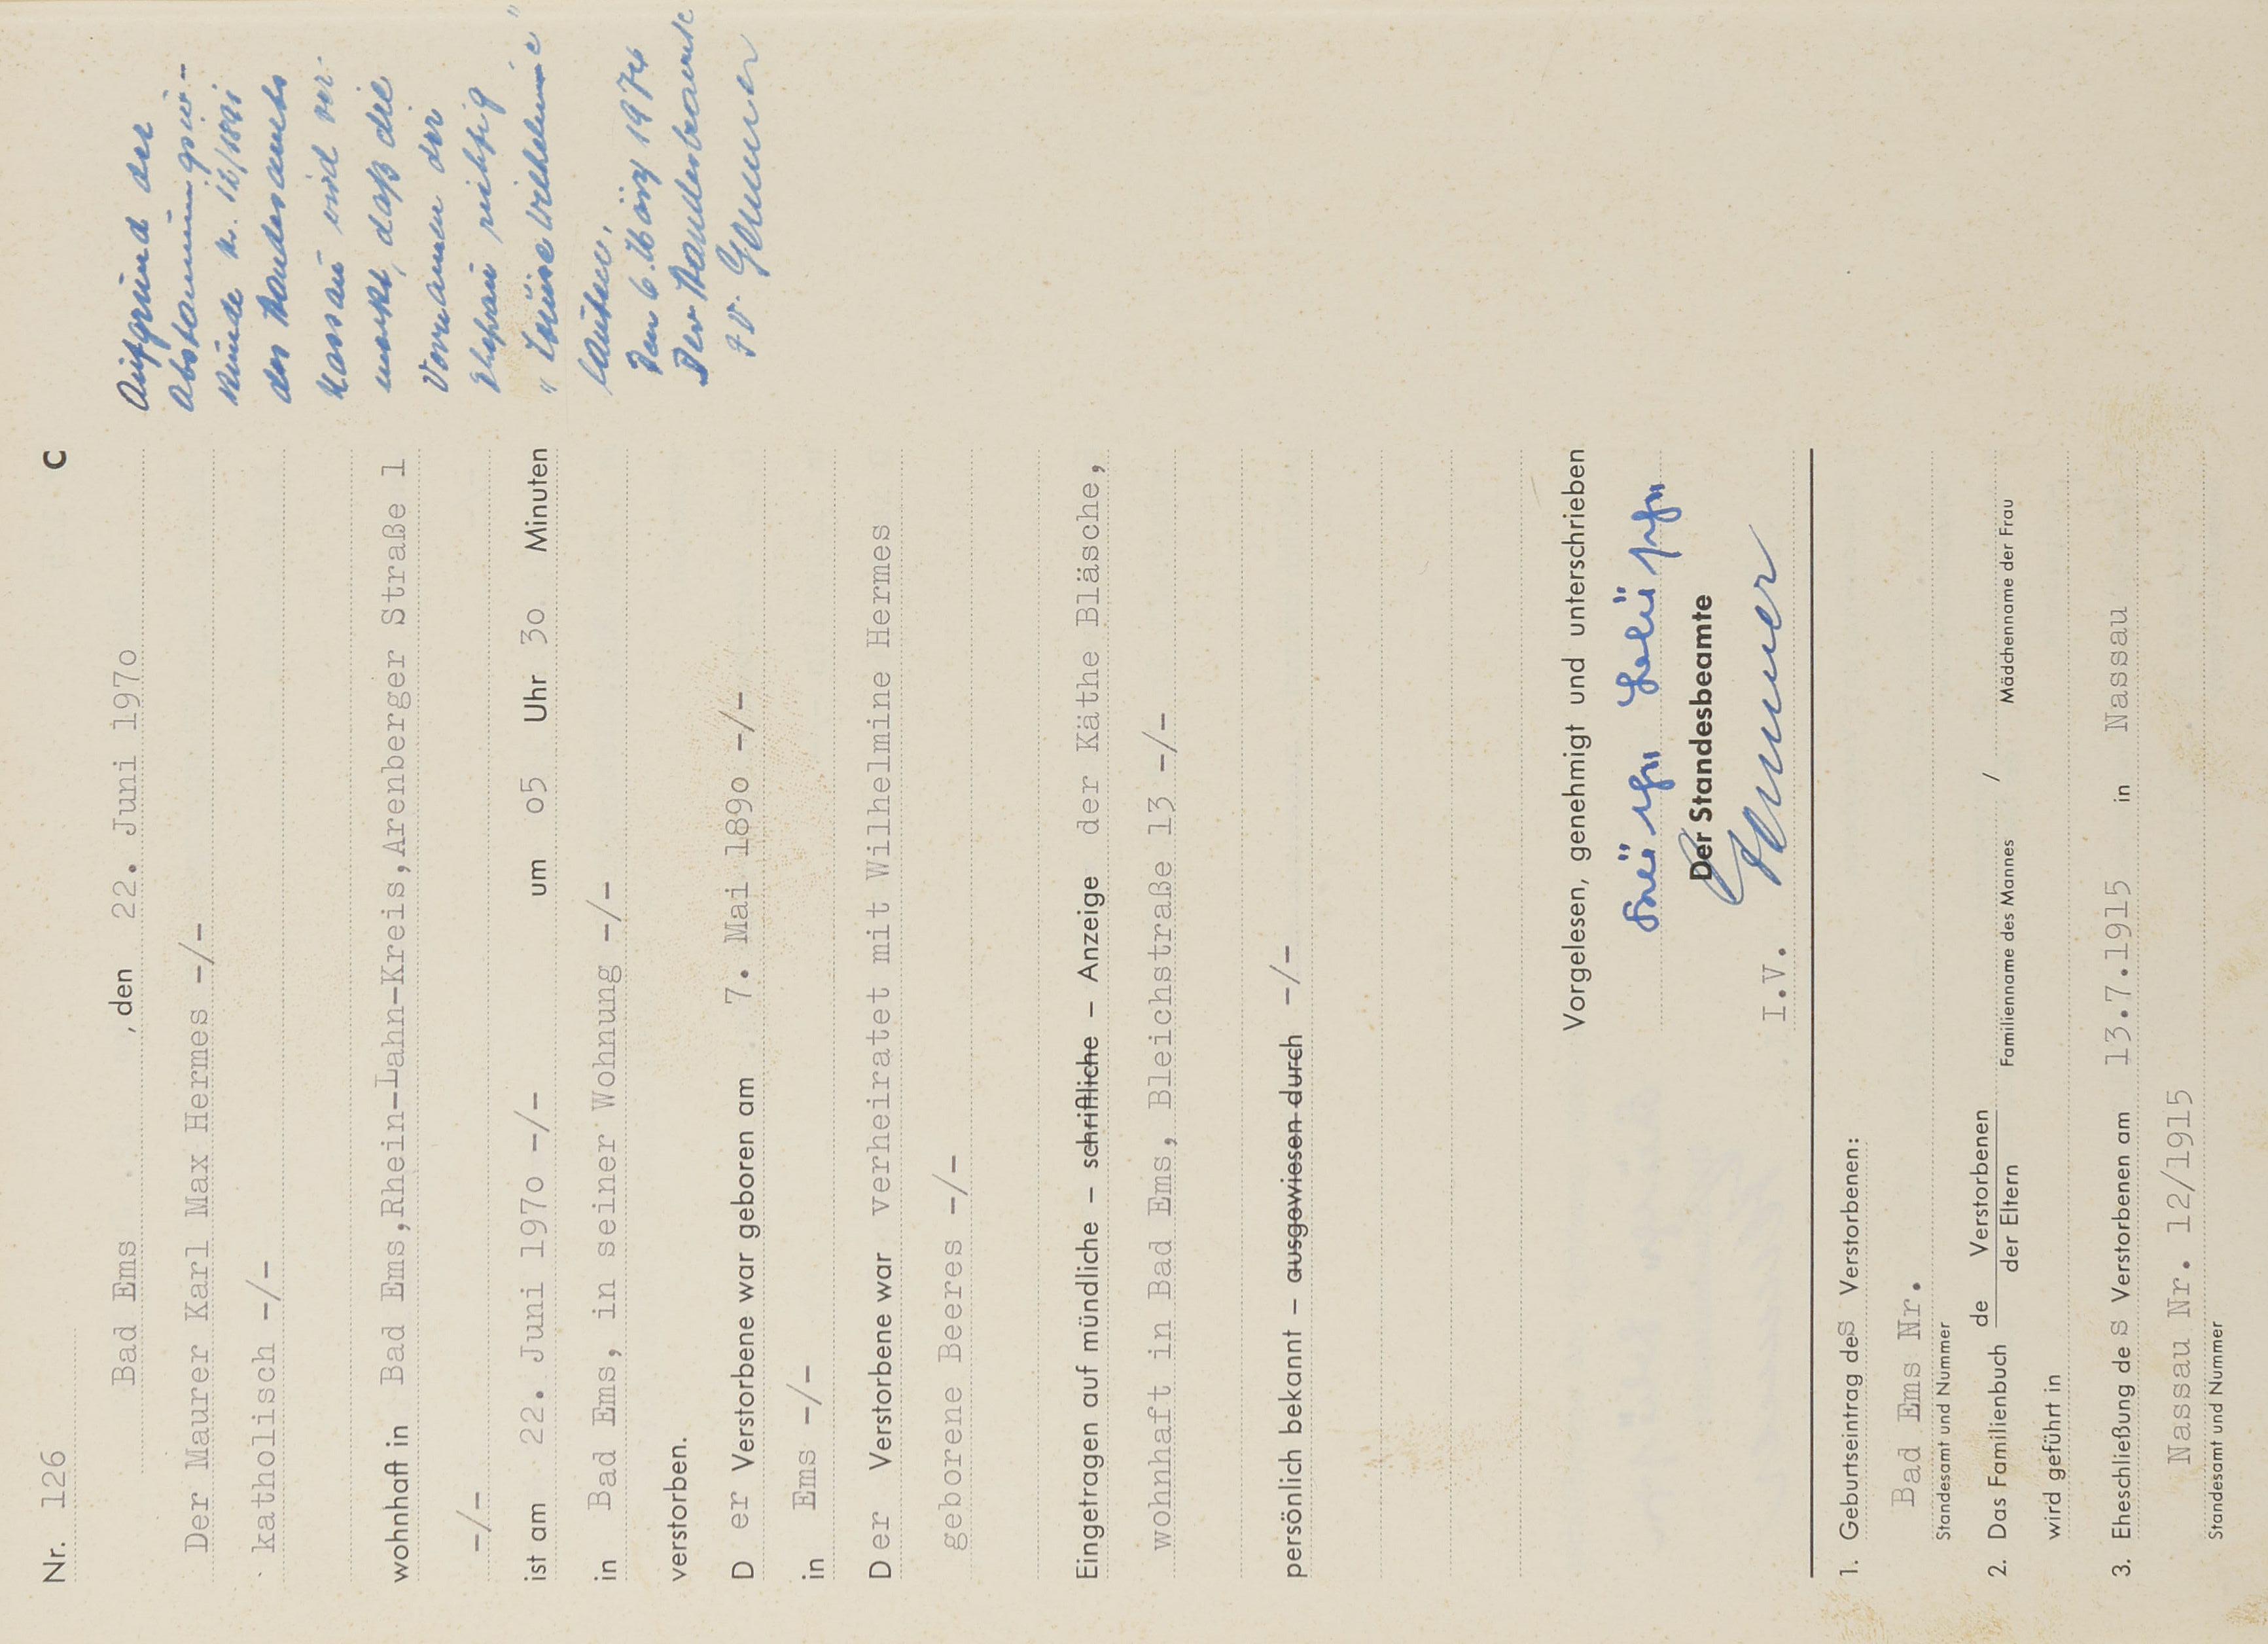 Nr. 126
C
Bad Ems , den 22. Juni 197o
Der Maurer Karl Max Hermes -/-
katholisch -/-
wohnhaft in Bad Ems,Rhein-Lahn-Kreis,Arenberger Straße 1
-/-
ist am 22. Juni 197o -/- um o5 Uhr 3o Minuten
in Bad Ems, in seiner Wohnung -/-
verstorben.
D er Verstorbene war geboren am 7. Mai 189o -/-
in Ems -/-
Der Verstorbene war verheiratet mit Wilhelmine Hermes
geborene Beeres -/-
Eingetragen auf mündliche – schriftliche – Anzeige der Käthe Bläsche,
wohnhaft in Bad Ems, Bleichstraße 13 -/-
persönlich bekannt – ausgewiesen durch -/-
Vorgelesen, genehmigt und unterschrieben
Der Standesbeamte
I.V.
1. Geburtseintrag des Verstorbenen:
Bad Ems Nr.
Standesamt und Nummer
2. Das Familienbuch de Verstorbenen
der Eltern
Familienname des Mannes / Mädchenname der Frau
wird geführt in
3. Eheschließung de s Verstorbenen am 13.7.1915 in Nassau
Nassau Nr. 12/1915
Standesamt und Nummer
Aufgrund der
Abstammungsur-
kunde Nr. 12/1891
des Standesamts
Nassau wird ver-
merkt, daß die
Vornamen der
Ehefrau richtig
"Luise Wilhelmine"
lauten.
Den 6. März 1974
Der Standesbeamte
I.V.